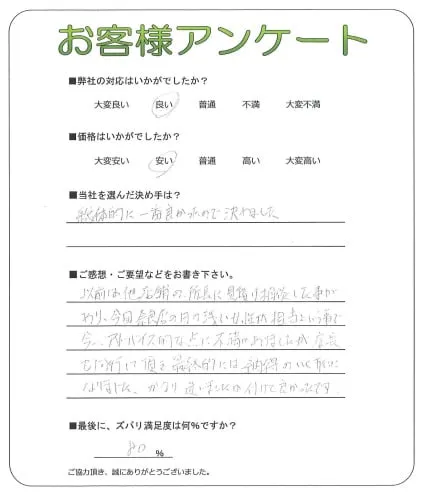 お客様アンケート
■弊社の対応はいかがでしたか？
大変良い 良い 普通 不満 大変不満
■価格はいかがでしたか？
大変安い 安い 普通 高い 大変高い
■当社を選んだ決め手は？
総体的に一番良かったので決めました
■ご感想・ご要望などをお書き下さい。
以前は他店舗の所長に見積り相談した事が
あり、今回奈良店の日の浅い女性が担当という事で
今一、アドバイス的な点に不満がありましたが店長
も同行して頂き最終的には納得のいく形に
なりました、かなり迷いましたが付けて良かったです。
■最後に、ズバリ満足度は何%ですか？
80 %
ご協力頂き、誠にありがとうございました。